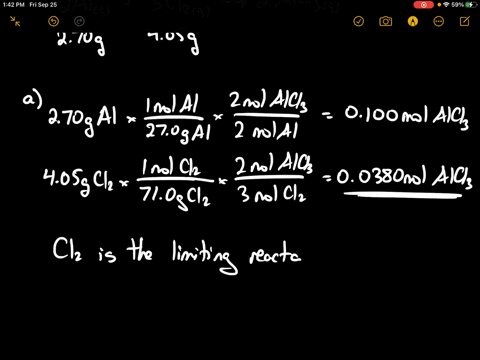 1:42 PM Fri Sep 25
59%
2.70g 4.05g
a)
2.70g Al × 1 mol Al / 27.0g Al × 2 mol AlCl₃ / 2 mol Al = 0.100 mol AlCl₃
4.05g Cl₂ × 1 mol Cl₂ / 71.0g Cl₂ × 2 mol AlCl₃ / 3 mol Cl₂ = 0.0380 mol AlCl₃
Cl₂ is the limiting reacta